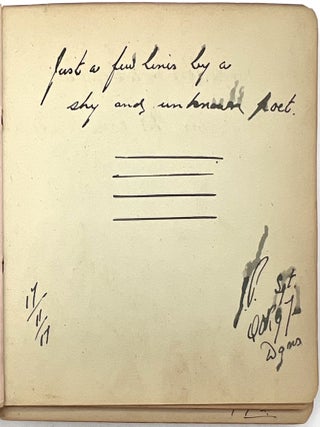 Just a few lines by a
shy and unknown poet.
17
11
17
Sgt.
Dgns